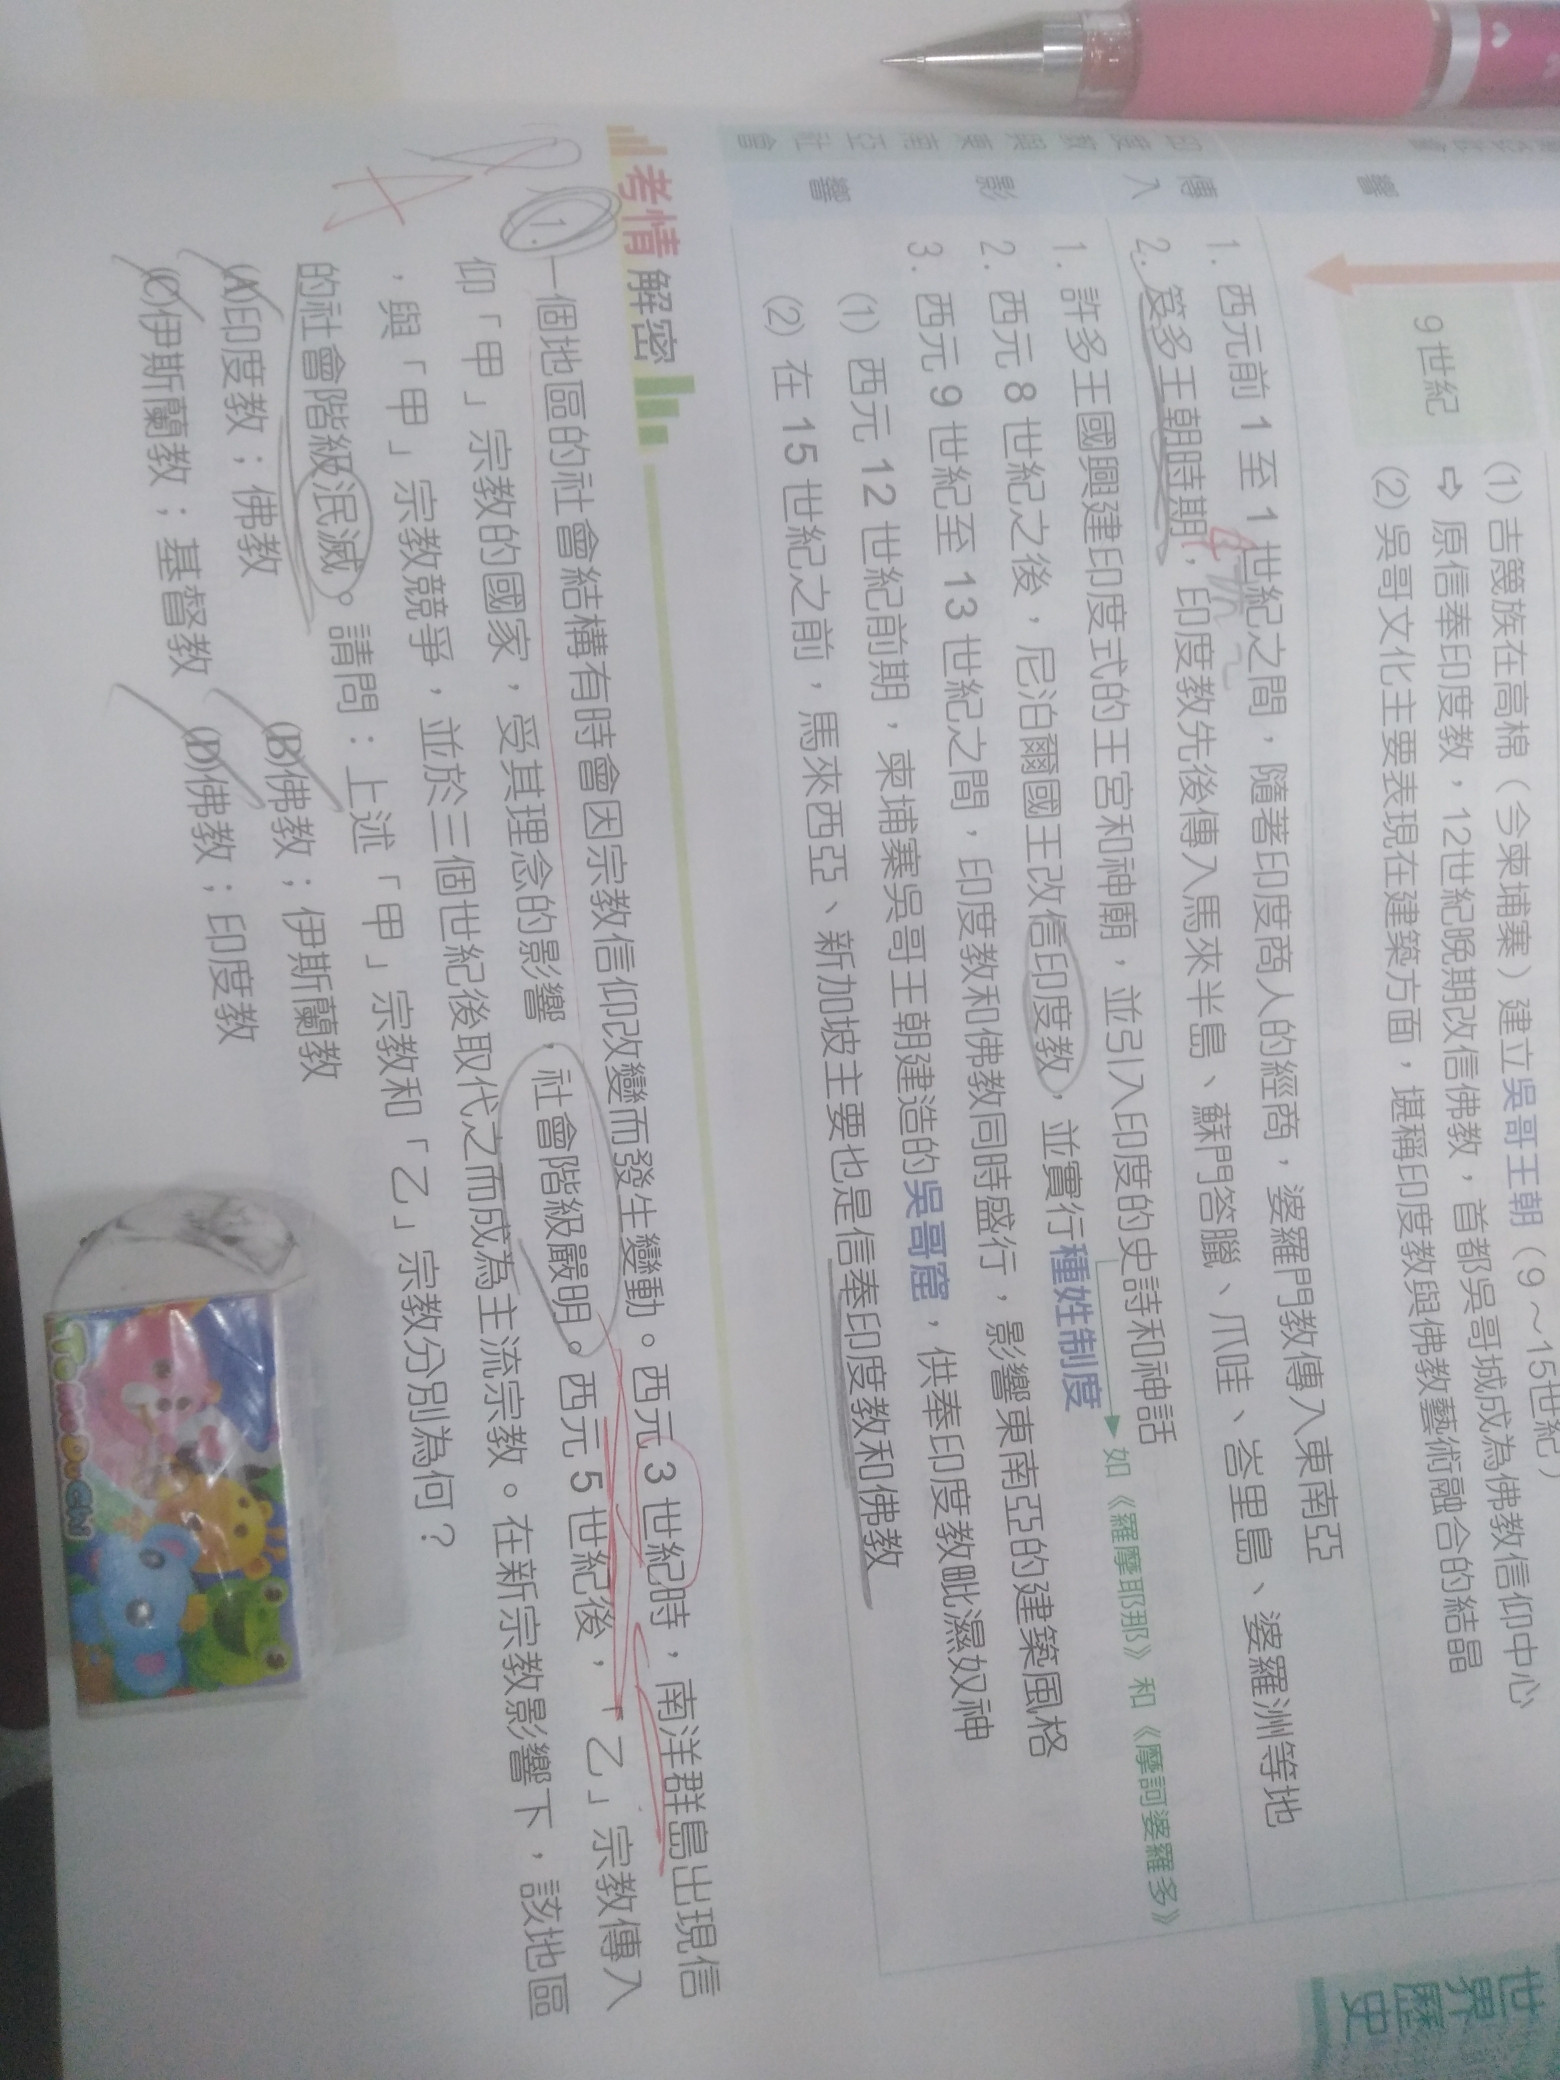 (1) 吉篾族在高棉（今柬埔寨）建立吳哥王朝（9～15世紀）
⇨ 原信奉印度教，12世紀晚期改信佛教，首都吳哥城成為佛教信仰中心
9世紀
(2) 吳哥文化主要表現在建築方面，堪稱印度教與佛教藝術融合的結晶
響
世界
歷史
傳入
1. 西元前 1 至 1 世紀之間，隨著印度商人的經商，婆羅門教傳入東南亞
2. 笈多王朝時期，印度教先後傳入馬來半島、蘇門答臘、爪哇、峇里島、婆羅洲等地
印度教與東南亞社會
影響
1. 許多王國興建印度式的王宮和神廟，並引入印度的史詩和神話
如《羅摩耶那》和《摩訶婆羅多》
2. 西元 8 世紀之後，尼泊爾國王改信印度教，並實行種姓制度
3. 西元 9 世紀至 13 世紀之間，印度教和佛教同時盛行，影響東南亞的建築風格
(1) 西元 12 世紀前期，柬埔寨吳哥王朝建造的吳哥窟，供奉印度教毗濕奴神
(2) 在 15 世紀之前，馬來西亞、新加坡主要也是信奉印度教和佛教
考情解密
1. 一個地區的社會結構有時會因宗教信仰改變而發生變動。西元 3 世紀時，南洋群島出現信
仰「甲」宗教的國家，受其理念的影響，社會階級嚴明。西元 5 世紀後，「乙」宗教傳入
，與「甲」宗教競爭，並於三個世紀後取代之而成為主流宗教。在新宗教影響下，該地區
的社會階級泯滅。請問：上述「甲」宗教和「乙」宗教分別為何？
(A)印度教；佛教 (B)佛教；伊斯蘭教
(C)伊斯蘭教；基督教 (D)佛教；印度教
A